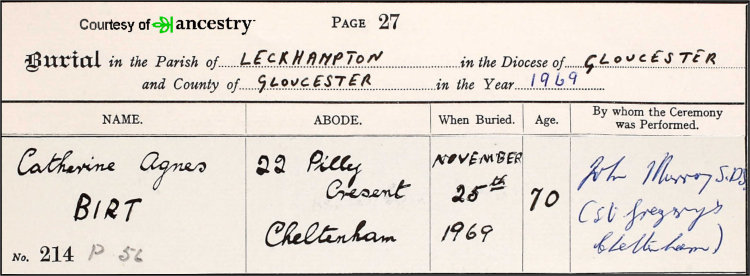 Courtesy of ancestry
PAGE 27
Burial in the Parish of LECKHAMPTON in the Diocese of GLOUCESTER
and County of GLOUCESTER in the Year 1969
NAME. ABODE. When Buried. Age. By whom the Ceremony was Performed.
Catherine Agnes
BIRT
22 Pilly
Cresent
Cheltenham
NOVEMBER
25th
1969
70
John Murray
(St Gregory's
Cheltenham)
No. 214 P 56